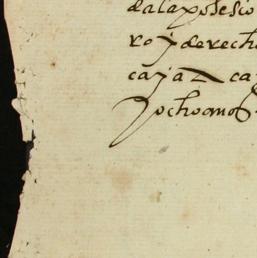 dalaposesio
ro y derech
caja z ca
y ochoanos